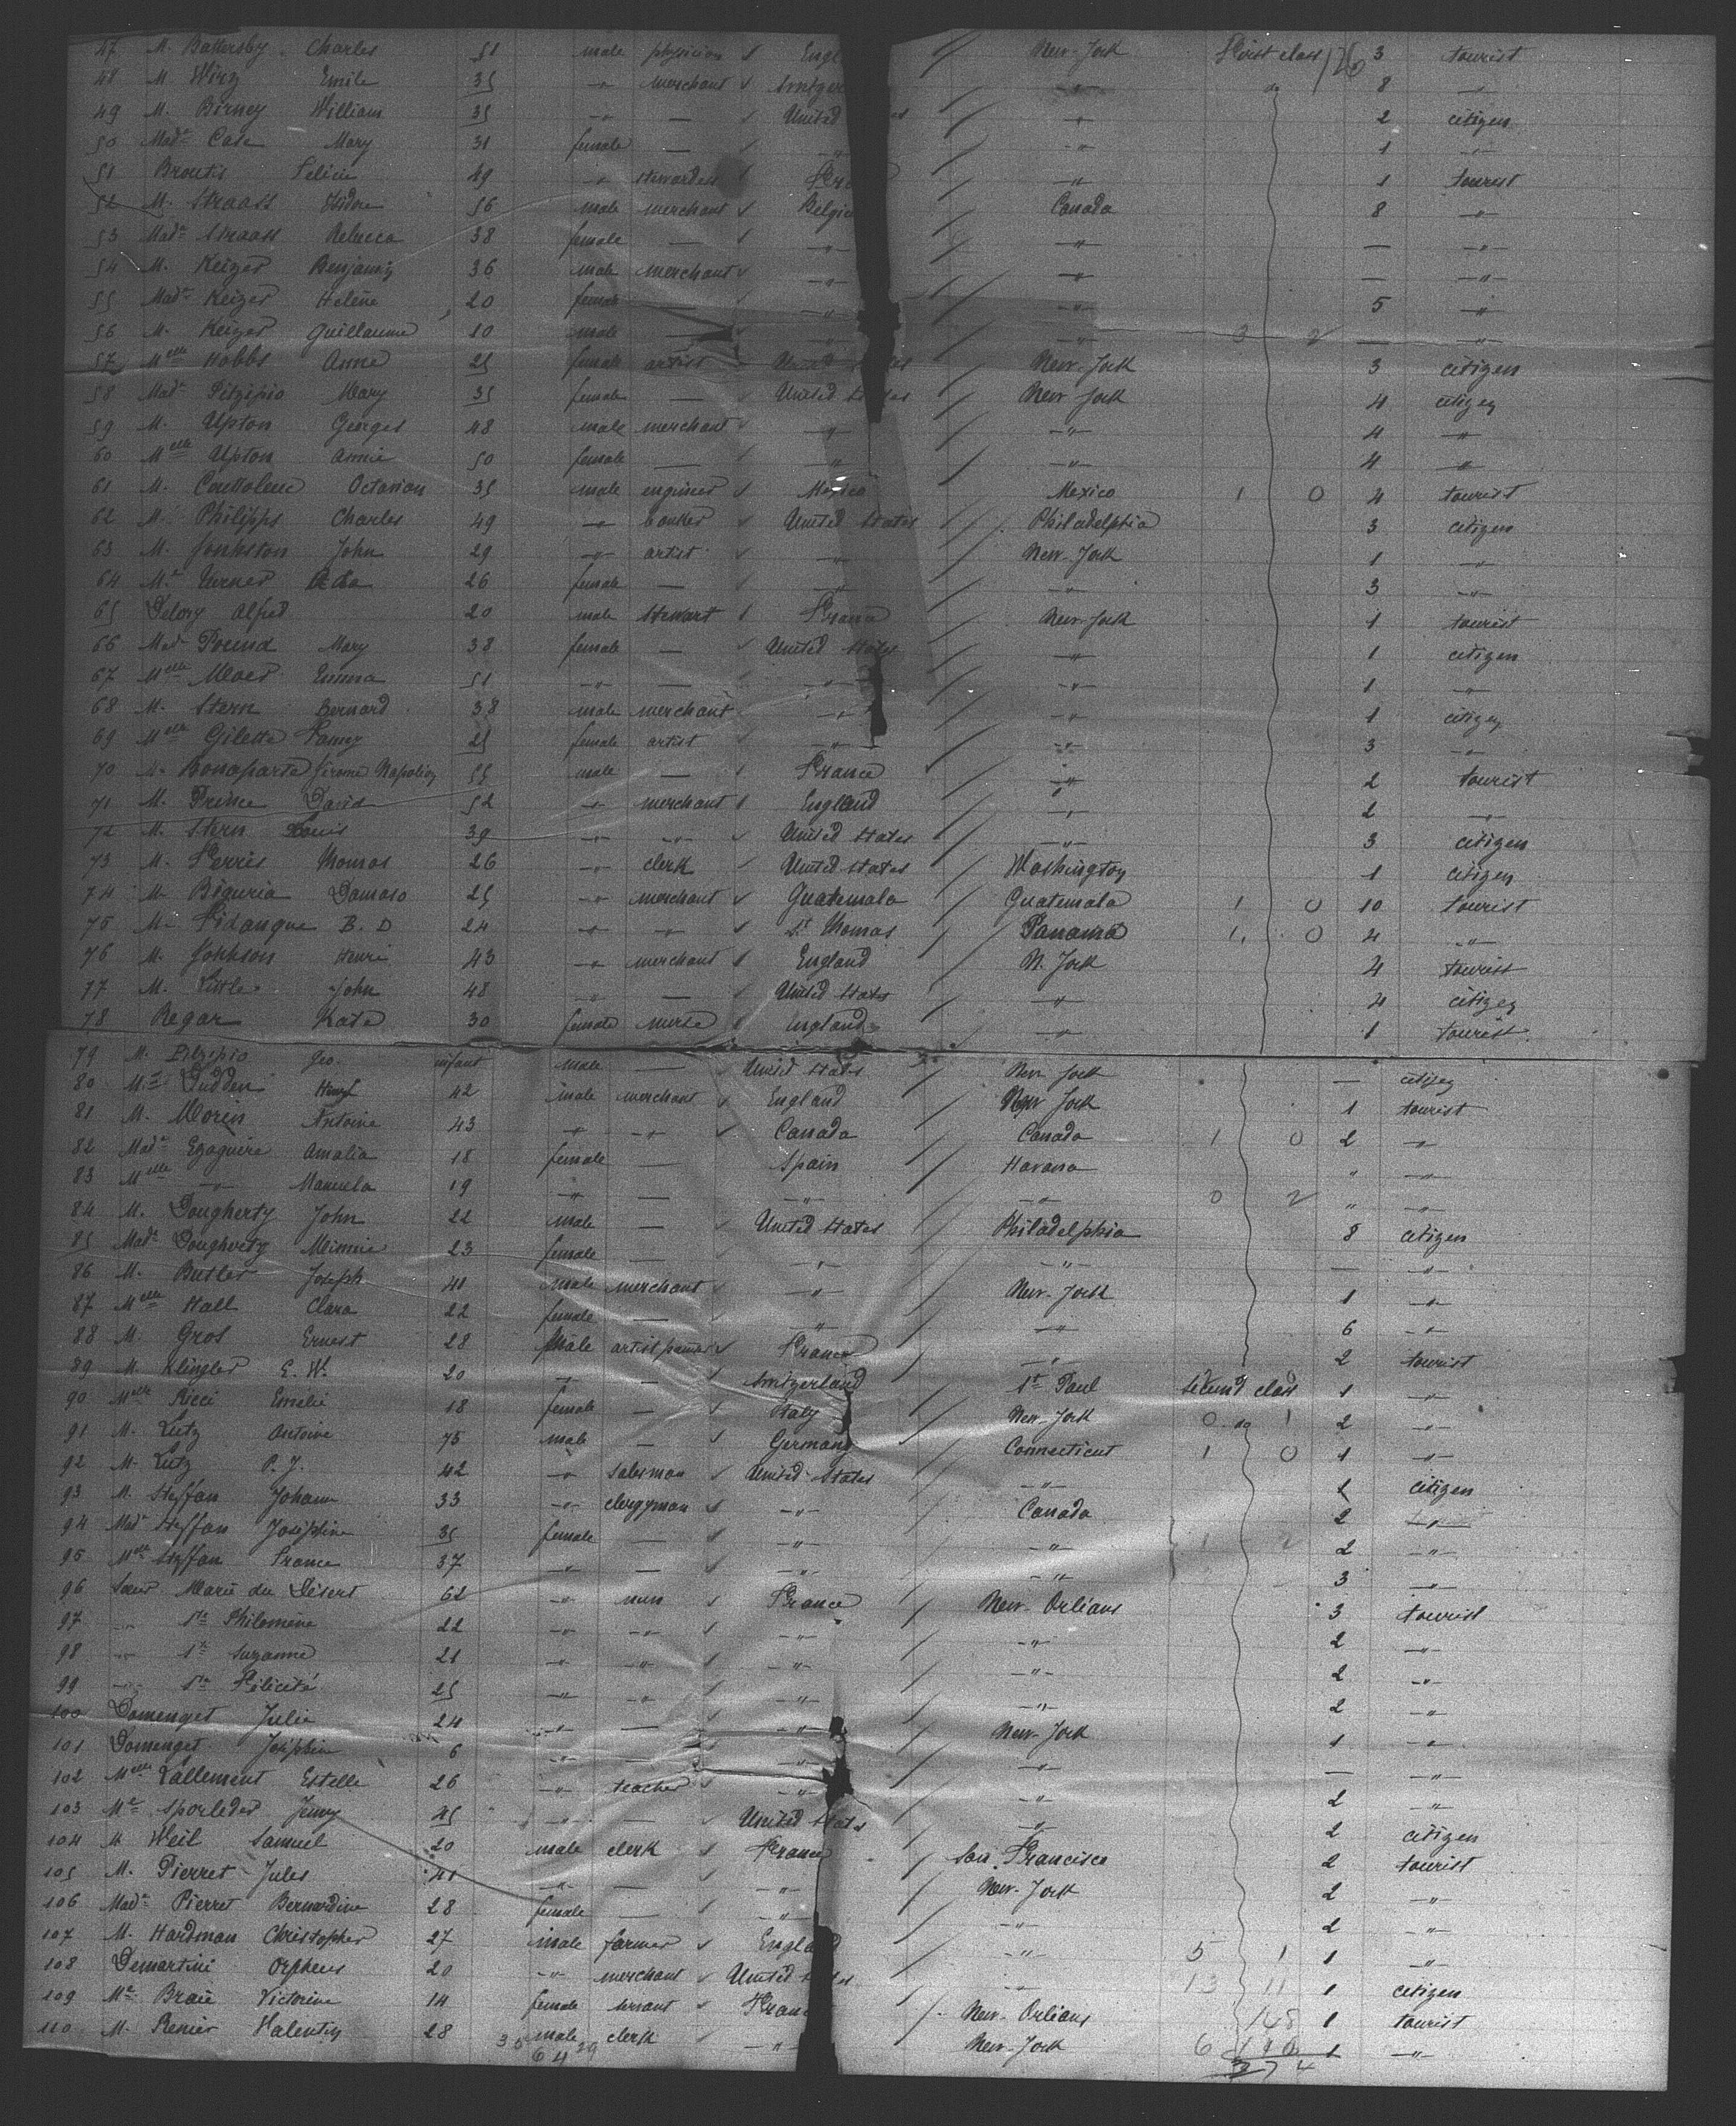 47 M. Battersby Charles 51 male physician Engl New-York First class 126 3 tourist
48 M. Wirz Emile 35 -"- merchant Switzer -"- do 8 -"-
49 M. Birney William 35 -"- — United es -"- 2 citizen
50 Made Case Mary 31 female — -"- -"- 1 -"-
51 Broutis Félicie 49 -"- stewardess Fra -"- 1 tourist
52 M. Straass Isidore 56 male merchant Belgiu Canada 8 -"-
53 Made Straass Rebecca 38 female — -"- -"- — -"-
54 M. Keizer Benjamin 36 male merchant -"- -"- — -"-
55 Made Keizer Helène 20 female — -"- -"- 5 -"-
56 M. Keizer Guillaume 10 male — -"- -"- 3 2 — -"-
57 Melle Hobbs Anna 25 female artist United States New-York 3 citizen
58 Made Pitzipio Mary 35 female — United States New York 4 citizen
59 M. Upton Georges 48 male merchant -"- -"- 4 -"-
60 Melle Upton Annie 50 female — -"- -"- 4 -"-
61 M. Couttolenc Octavian 35 male engineer Mexico Mexico 1 0 4 tourist
62 M. Philipps Charles 49 -"- banker United States Philadelphia 3 citizen
63 M. Jonhston John 29 -"- artist -"- New-York 1 -"-
64 Me Turner Ada 26 female — -"- -"- 3 -"-
65 Delory Alfred 20 male stewart France New-York 1 tourist
66 Made Pound Mary 38 female — United States -"- 1 citizen
67 Melle Moer Emma 51 -"- — -"- -"- 1 -"-
68 M. Stern Bernard 38 male merchant -"- -"- 1 citizen
69 Melle Gilette Fanny 25 female artist -"- -"- 3 -"-
70 M. Bonaparte Jérome Napoléon 55 male — France -"- 2 tourist
71 M. Prince David 52 -"- merchant England -"- 2 -"-
72 M. Stern Louis 39 -"- -"- United States -"- 3 citizen
73 M. Ferris Thomas 26 -"- clerk United States Washington 1 citizen
74 M. Biguria Damaso 25 -"- merchant Guatemala Guatemala 1 0 10 tourist
75 M. Fidanque B. D 24 -"- -"- St Thomas Panama 1 0 4 -"-
76 M. Johkson Henri 43 -"- merchant England N. York 4 tourist
77 M. Little John 48 -"- — United States -"- 4 citizen
78 Regar Kate 30 female nurse England -"- 1 tourist
79 M. Pitzipio Geo. infant male — United States New York — citizen
80 M. Dudden Henry 42 male merchant England New York 1 tourist
81 M. Morin Antoine 43 -"- -"- Canada Canada 1 0 2 -"-
82 Made Ezaguire Amalia 18 female — Spain Havana " -"-
83 Melle -"- Manuela 19 -"- — -"- -"- 0 2 " -"-
84 M. Dougherty John 22 male — United States Philadelphia 8 citizen
85 Made Dougherty Minnie 23 female — -"- -"- — -"-
86 M. Butler Joseph 40 male merchant -"- New-York 1 -"-
87 Melle Hall Clara 22 female — -"- -"- 6 -"-
88 M. Gros Ernest 28 male artist painter France -"- 2 tourist
89 M. Klingler E. W. 20 -"- — Switzerland St Paul second class 1 -"-
90 Melle Ricci Emelie 18 female — Italy New-York 0 do 1 2 -"-
91 M. Lutz Antoine 75 male — Germany Connecticut 1 0 1 -"-
92 M. Lutz P. J. 42 -"- salesman United States -"- 1 citizen
93 M. Steffan Johann 33 -"- clergyman -"- Canada 2 -"-
94 Made Steffan Joséphine 35 female — -"- -"- 1 2 2 -"-
95 Melle Steffan France 37 -"- — -"- -"- 3 -"-
96 Soeur Marie du Désert 62 -"- nun France New-Orléans 3 tourist
97 -"- Ste Philomène 22 -"- -"- -"- -"- 2 -"-
98 -"- Ste Suzanne 21 -"- -"- -"- -"- 2 -"-
99 -"- Ste Félicité 25 -"- -"- -"- -"- 2 -"-
100 Domenget Julie 24 -"- — -"- New-York 1 -"-
101 Domenget Joséphine 6 -"- — -"- -"- — -"-
102 Melle Lallement Estelle 26 -"- teacher -"- -"- 2 -"-
103 Me Sporleder Jenny 45 -"- — United States -"- 2 citizen
104 M Weil Samuel 20 male clerk France San Francisco 2 tourist
105 M. Pierret Jules 41 -"- — -"- New-York 2 -"-
106 Made Pierret Bernardine 28 female — -"- -"- 2 -"-
107 M. Hardman Christopher 27 male farmer England -"- 5 1 1 -"-
108 Demartini Orpheus 20 -"- merchant United es -"- 13 11 1 citizen
109 Me Braie Victorine 14 female servant Franc New-Orléans 148 1 tourist
110 M. Renier Valentin 28 male clerk -"- New-York 6 1 -"-
35 64 29